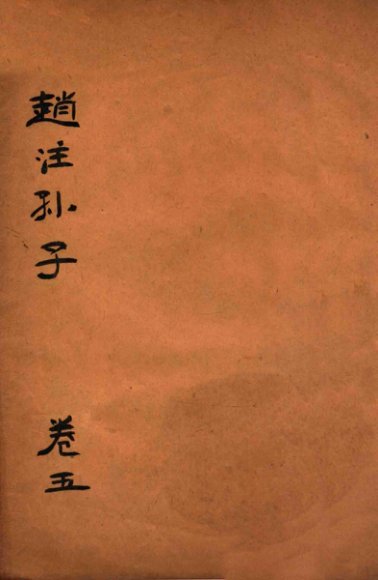 趙注孙子
卷五